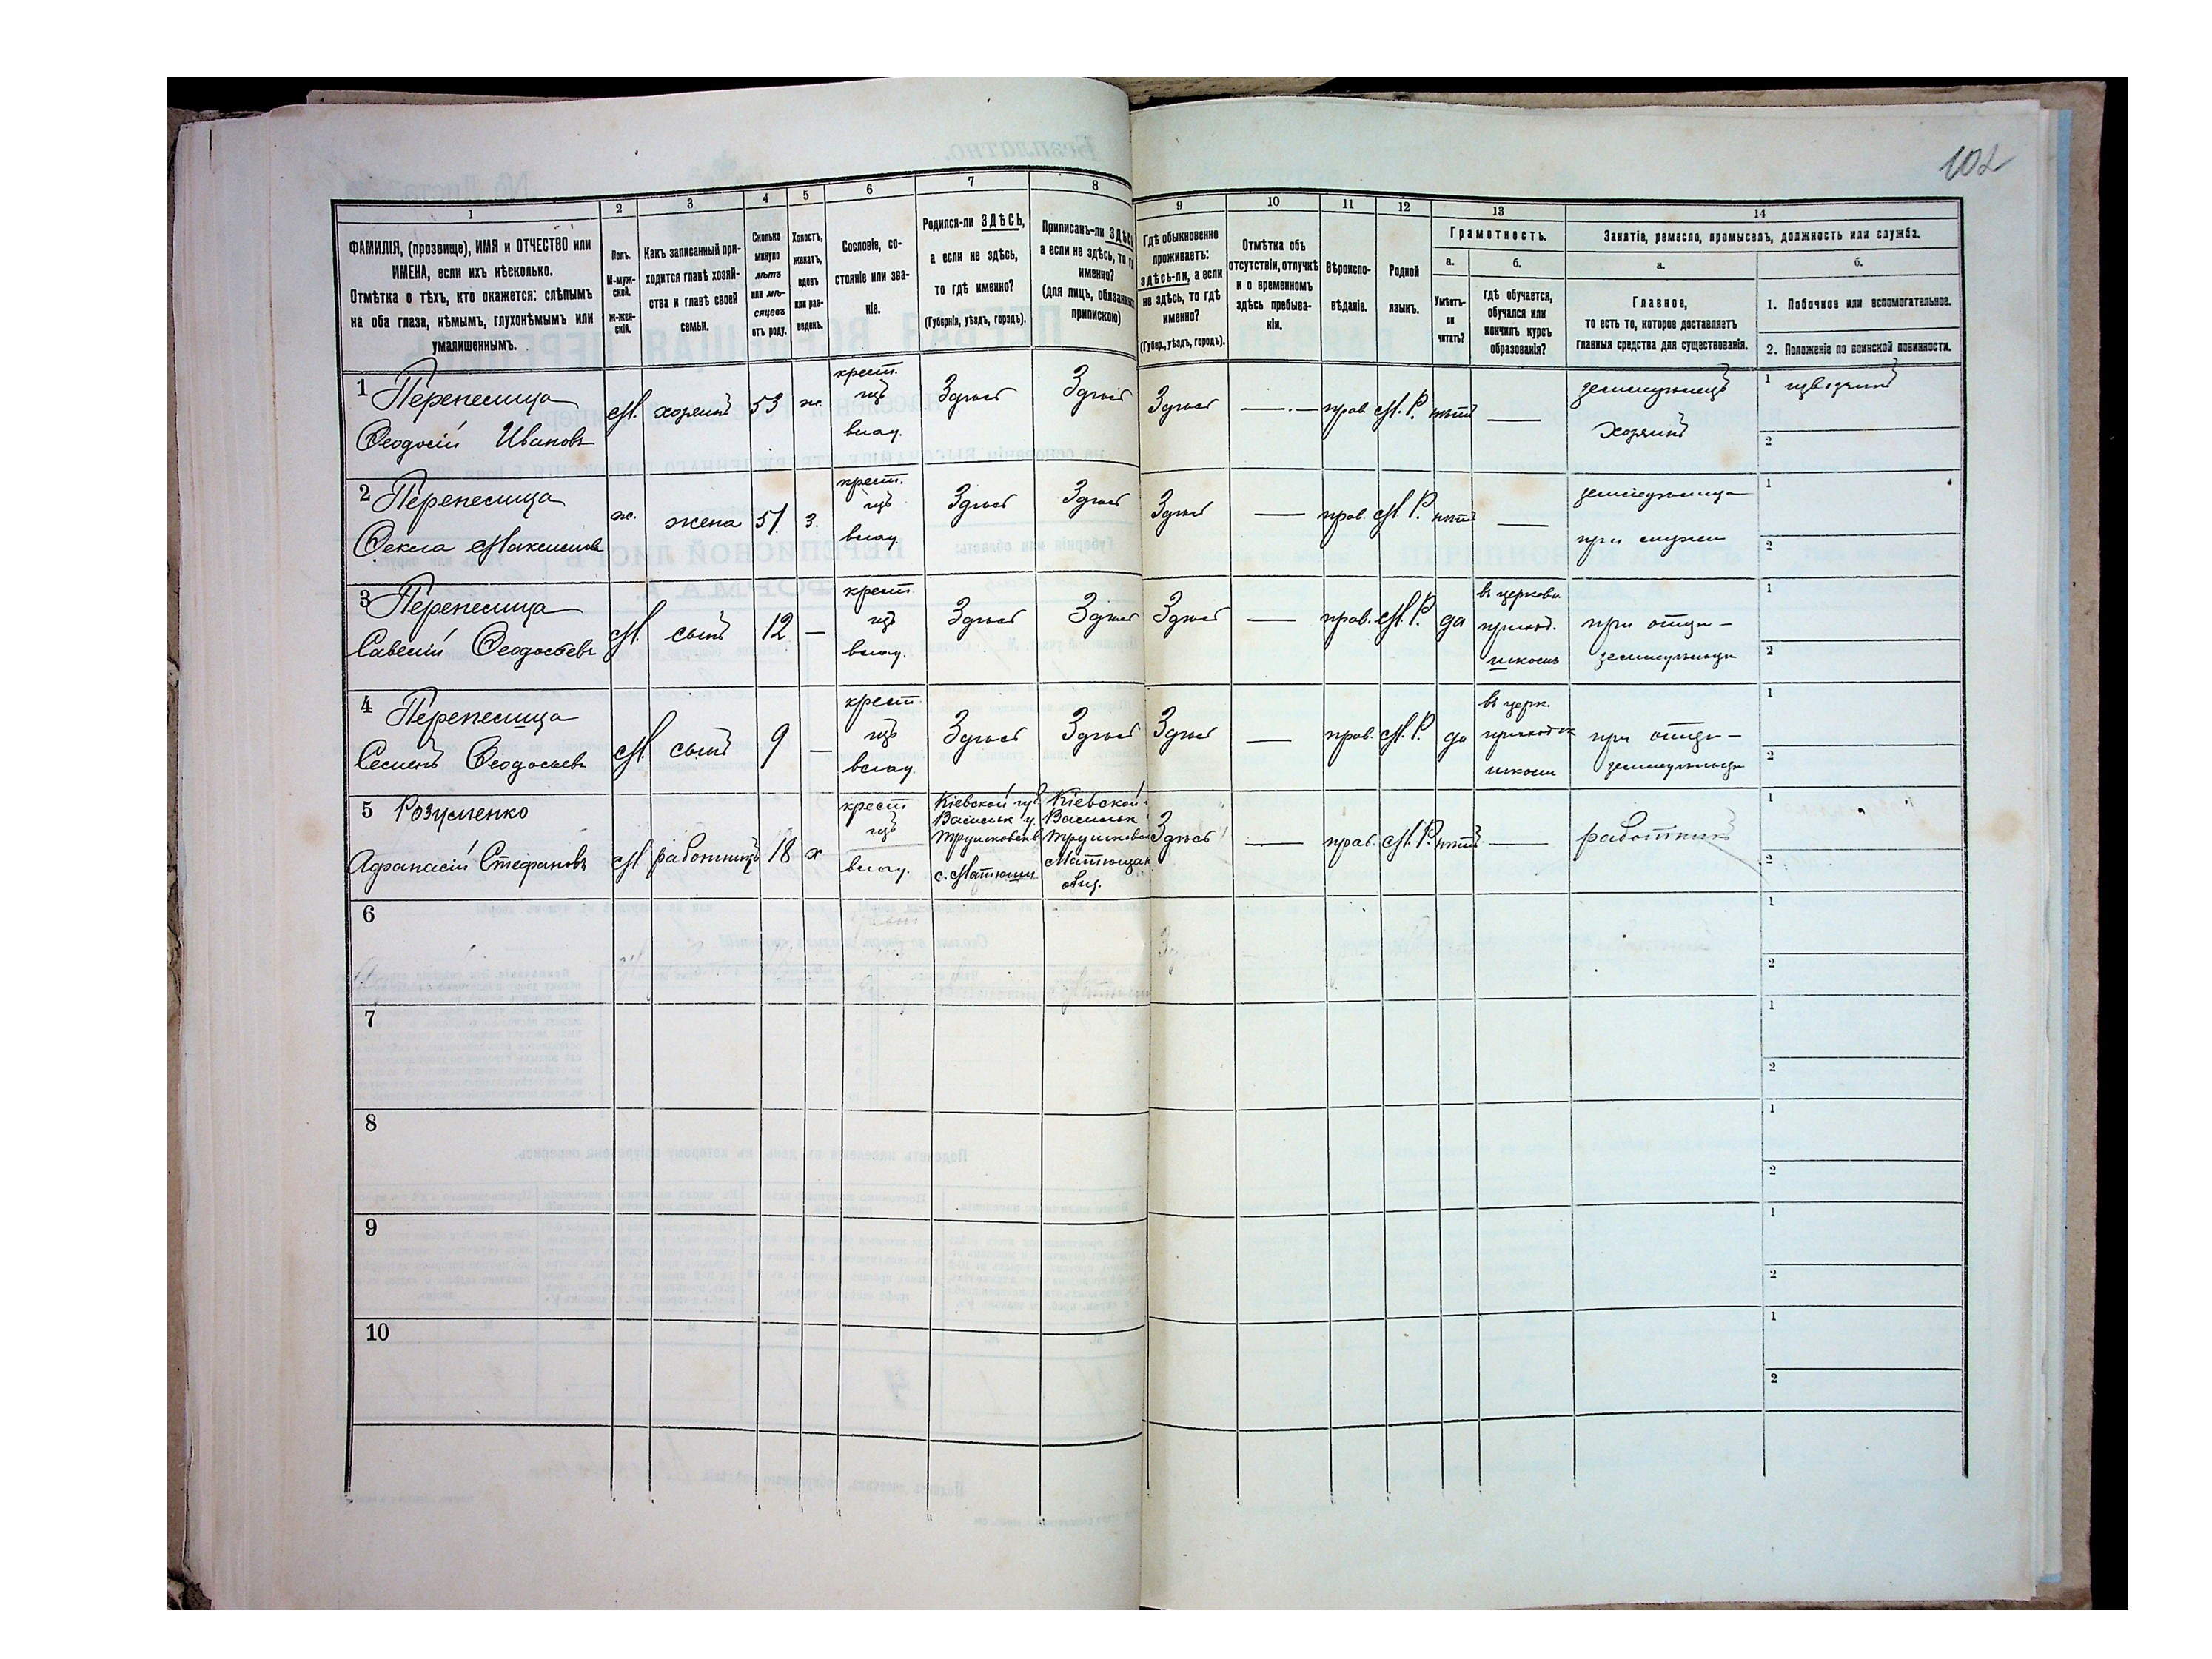 102
1
2
3
4
5
6
7
8
9
10
11
12
13
14
ФАМИЛІЯ, (прозвище), ИМЯ и ОТЧЕСТВО или
ИМЕНА, если ихъ нѣсколько.
Отмѣтка о тѣхъ, кто окажется: слѣпымъ
на оба глаза, нѣмымъ, глухонѣмымъ или
умалишеннымъ.
Полъ.
М-муж-
ской.
Ж-жен-
скій.
Какъ записанный при-
ходится главѣ хозяй-
ства и главѣ своей
семьи.
Сколько
минуло
лѣтъ
или мѣ-
сяцевъ
отъ роду.
Холостъ,
женатъ,
вдовъ
или раз-
веденъ.
Сословіе, со-
стояніе или зва-
ніе.
Родился-ли ЗДѢСЬ,
а если не здѣсь,
то гдѣ именно?
(Губернія, уѣздъ, городъ).
Приписанъ-ли ЗДѢСЬ
а если не здѣсь, то гд
именно?
(для лицъ, обязанных
припискою)
Гдѣ обыкновенно
проживаетъ:
здѣсь-ли, а если
не здѣсь, то гдѣ
именно?
(Губер., уѣздъ, городъ).
Отмѣтка объ
отсутствіи, отлучкѣ
и о временномъ
здѣсь пребыва-
ніи.
Вѣроиспо-
вѣданіе.
Родной
языкъ.
Грамотность.
а.
Умѣетъ-
ли
читать?
б.
гдѣ обучается,
обучался или
кончилъ курсъ
образованія?
Занятіе, ремесло, промыселъ, должность или служба.
а.
Главное,
то есть то, которое доставляетъ
главныя средства для существованія.
б.
1. Побочное или вспомогательное.
2. Положеніе по воинской повинности.
1 Перепелица
Ѳеодосій Ивановъ
М. хозяинъ 53 ж.
крест.
изъ
влад.
Здѣсь Здѣсь Здѣсь — прав. М. Р. нѣтъ —
земледѣлецъ
хозяинъ
1 извозчикъ
2
2 Перепелица
Ѳекла Максимова
ж. жена 51 з.
крест.
изъ
влад.
Здѣсь Здѣсь Здѣсь — прав. М. Р. нѣтъ —
при мужѣ
1
2
3 Перепелица
Савелій Ѳеодосіевъ
М. сынъ 12 —
крест.
изъ
влад.
Здѣсь Здѣсь Здѣсь — прав. М. Р. да
въ церковн
приход.
школѣ
при отцѣ —
земледѣльцѣ
1
2
4 Перепелица
Семенъ Ѳеодосьевъ
М. сынъ 9 —
крест.
изъ
влад.
Здѣсь Здѣсь Здѣсь — прав. М. Р. да
въ церк.
приходск
школѣ
при отцѣ —
земледѣльцѣ
1
2
5 Розуменко
Афанасій Стефановъ
М работникъ 18 х
крест
изъ
влад.
Кіевской губ
Васильк у.
Трушковск в
с. Матюши
Кіевской г
Васильк
Трушковск
Матюшан
общ.
Здѣсь — прав. М. Р. нѣтъ — работникъ
1
2
6
1
2
7
1
2
8
1
2
9
1
2
10
1
2